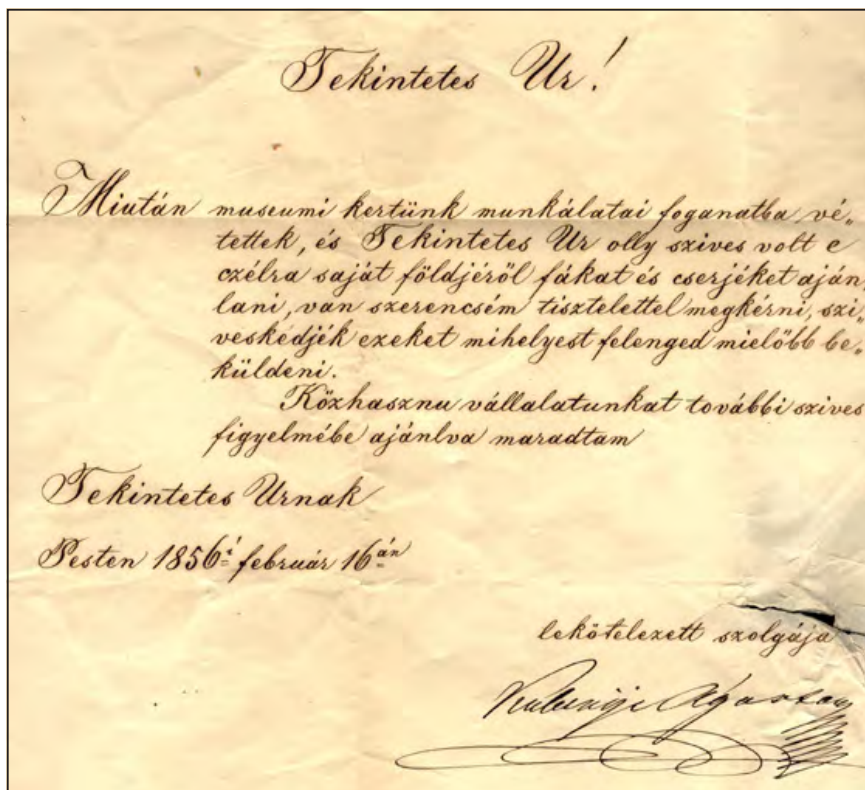 Tekintetes Ur!
Miután museumi kertünk munkálatai foganatba vé-
tettek, és Tekintetes Ur olly szives volt e
czélra saját földjéről fákat és cserjéket aján-
lani, van szerencsém tisztelettel megkérni, szi-
veskédjék ezeket mihelyest felenged mielőbb be-
küldeni.
Közhasznu vállalatunkat további szives
figyelmébe ajánlva maradtam
Tekintetes Urnak
Pesten 1856i február 16án
lekötelezett szolgája
Kubinyi Ágoston